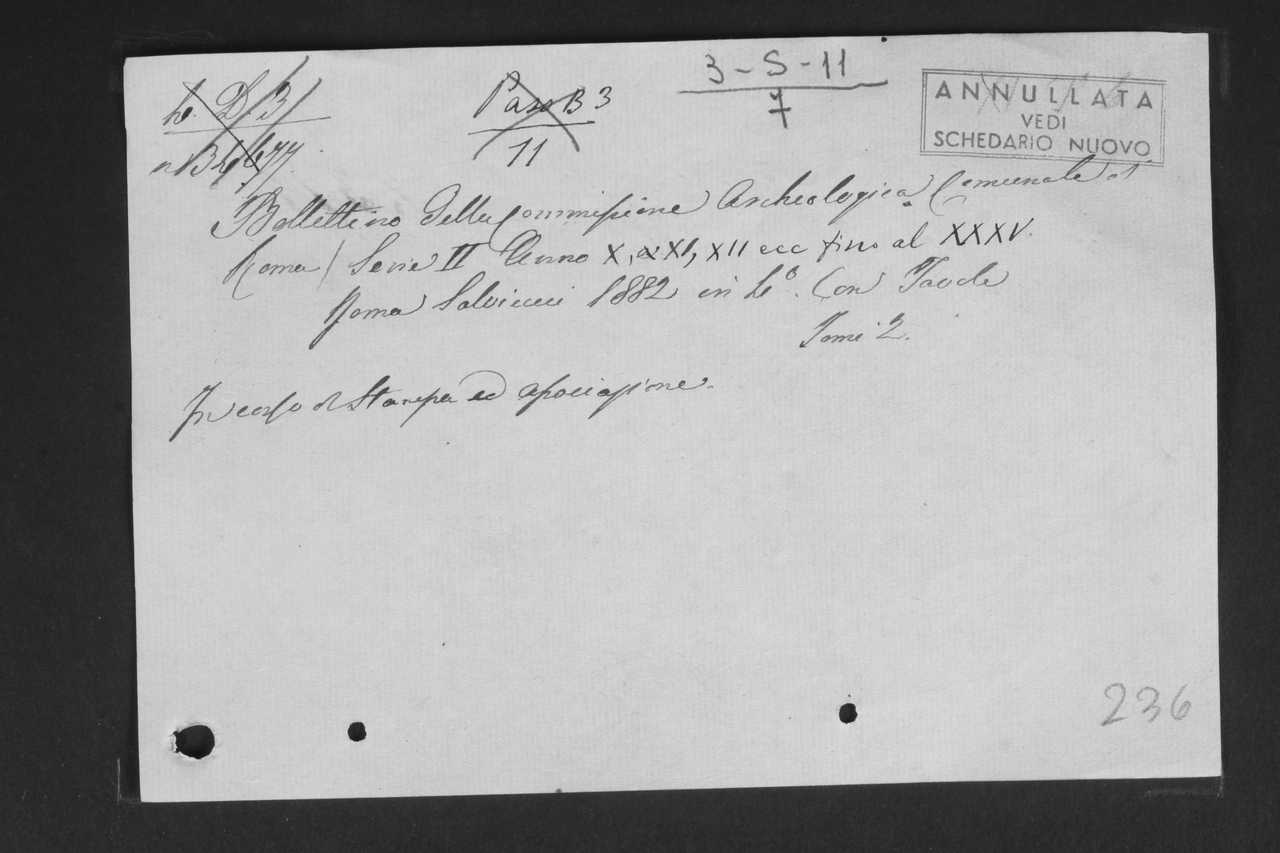 3-S-11
7
Paso B 3
11
ANNULLATA
VEDI
SCHEDARIO NUOVO
Bollettino della Commissione Archeologica Comunale di
Roma / Serie II Anno X, XI, XII ecc fino al XXXV.
Roma Salviucci 1882 in 4º. Con Tavole
Tomi 2.
In corso di Stampa ed associazione.
236